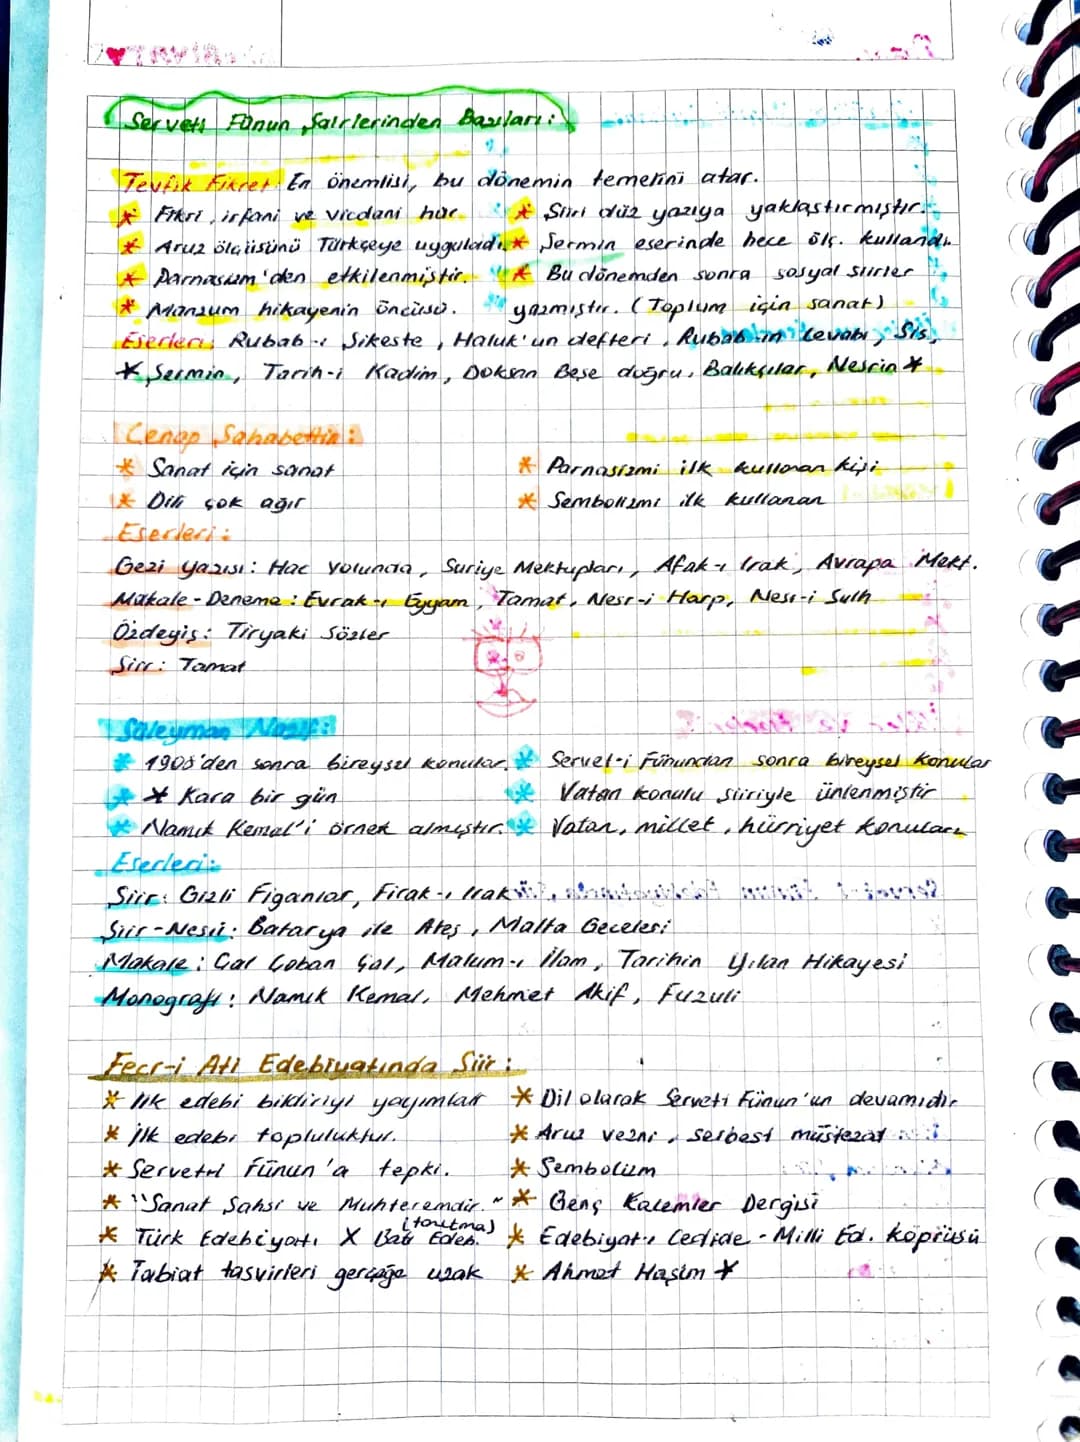 Serveti Fünun Şairlerinden Bazıları:
Tevfik Fikret: En önemlisi, bu dönemin temelini atar.
* Fikri, irfani ve vicdani hür. * Şiiri düz yazıya yaklaştırmıştır.
* Aruz ölçüsünü Türkçeye uyguladı. * Şermin eserinde hece ölç. kullandı.
* Parnasizm'den etkilenmiştir. * Bu dönemden sonra sosyal şiirler
* Manzum hikayenin öncüsü. yazmıştır. (Toplum için sanat)
Eserleri: Rubab-ı Şikeste, Haluk'un defteri, Rubab'ın Cevabı, Sis,
* Şermin, Tarih-i Kadim, Doksan Beşe doğru, Balıkçılar, Nesrin *
Cenap Şahabettin:
* Sanat için sanat * Parnasizmi ilk kullanan kişi
* Dili çok ağır * Sembolizmi ilk kullanan
Eserleri:
Gezi yazısı: Hac Yolunda, Suriye Mektupları, Afak-ı Irak, Avrapa Mekt.
Makale-Deneme: Evrak-ı Eyyam, Tamat, Nesr-i Harp, Nesr-i Sulh
Özdeyiş: Tiryaki Sözler
Şiir: Tamat
Süleyman Nazif:
* 1908'den sonra bireysel konular. * Servet-i Fünundan sonra bireysel konular
* * Kara bir gün * Vatan konulu şiiriyle ünlenmiştir
* Namık Kemal'i örnek almıştır. * Vatan, millet, hürriyet konuları
Eserleri:
Şiir: Gizli Figanlar, Firak-ı Irak
Şiir-Nesir: Batarya ile Ateş, Malta Geceleri
Makale: Çal Çoban Çal, Malum-ı İlam, Tarihin Yılan Hikayesi
Monografi: Namık Kemal, Mehmet Akif, Fuzuli
Fecr-i Ati Edebiyatında Şiir:
* İlk edebi bildiriyi yayımlar * Dil olarak Serveti Fünun'un devamıdır
* İlk edebi topluluktur. * Aruz vezni, serbest müstezat
* Serveti Fünun'a tepki. * Sembolizm
* "Sanat Şahsi ve Muhteremdir." * Genç Kalemler Dergisi
* Türk Edebiyatı X Batı Edeb. (tanıtma) * Edebiyat-ı Cedide - Milli Ed. köprüsü
* Tabiat tasvirleri gerçeğe uzak * Ahmet Haşim *